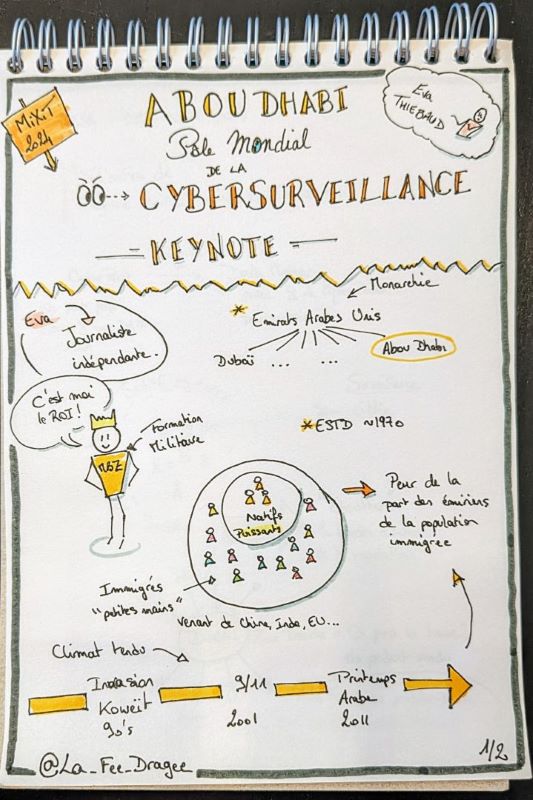 MiXiT
2024
ABOU DHABI
Pôle Mondial
DE LA
CYBERSURVEILLANCE
KEYNOTE
Eva
THIEBAUD
Eva
Journaliste
indépendante.
Monarchie
Emirats Arabes Unis
Dubaï ... ... Abou Dhabi
C'est moi
le ROI!
MBZ
Formation
Militaire
ESTD ~1970
Natifs
Puissants
Peur de la
part des émiriens
de la population
immigrée
Immigrés
"petites mains"
venant de Chine, Inde, EU...
Climat tendu
Invasion
Koweït
90's
9/11
2001
Printemps
Arabe
2011
@La_Fee_Dragee
1/2